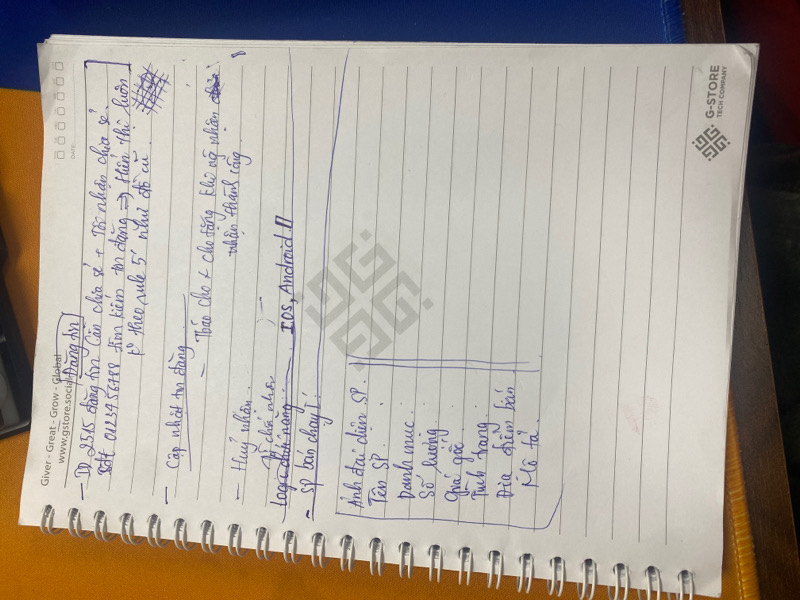 Giver - Great - Grow - Global
www.gstore.social
Đăng tin
DATE:
- ID 2515 đăng tin Cần chia sẻ + Tôi nhận chia sẻ.
Sđt 0123456788 tìm kiếm tin đăng => Hiển thị luôn
ko theo rule 5 như đồ cũ.
- Cập nhật tin đăng
- Tbáo cho & cho tặng khi ng nhận
nhận thành công.
- Huỷ nhận.
Từ chối nhận
Logic chức năng IOS, Android
- SP bán chạy
Ảnh đại diện SP.
Tên SP
Danh mục
Số lượng
Giá gốc
Tình trạng
Địa điểm bán
Mô tả
G-STORE
TECH COMPANY